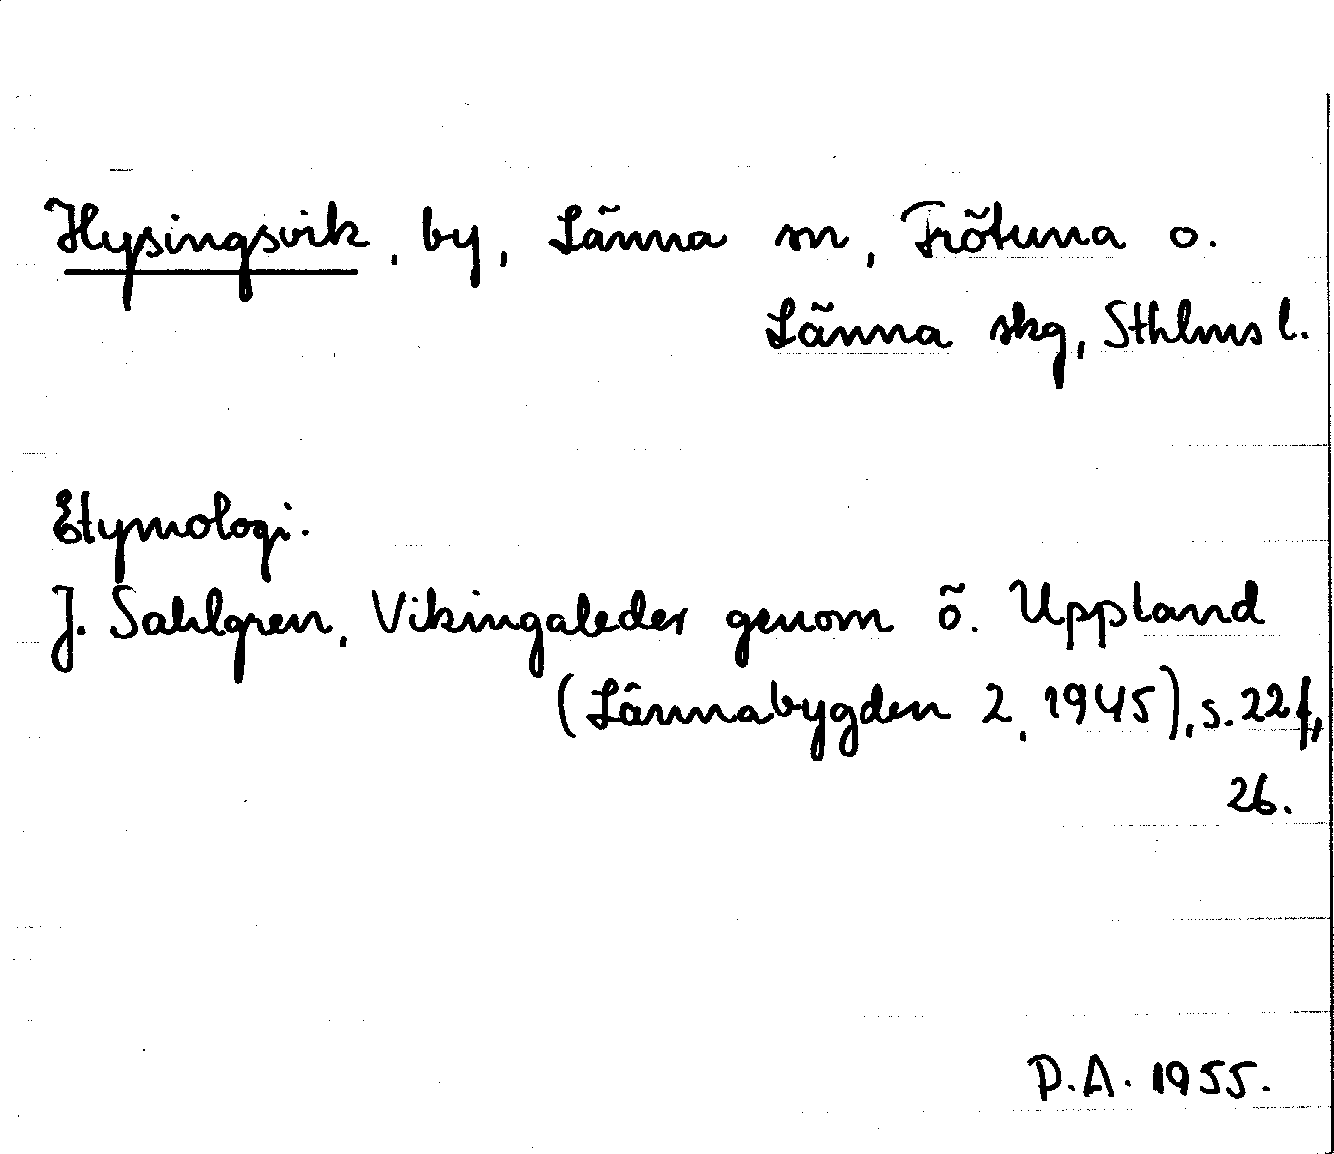 Hysingsvik, by, Länna sn, Frötuna o.
Länna skg, Sthlms l.
Etymologi.
J. Sahlgren, Vikingaleder genom ö. Uppland
(Lännabygden 2, 1945), s. 22 f,
26.
P.A. 1955.